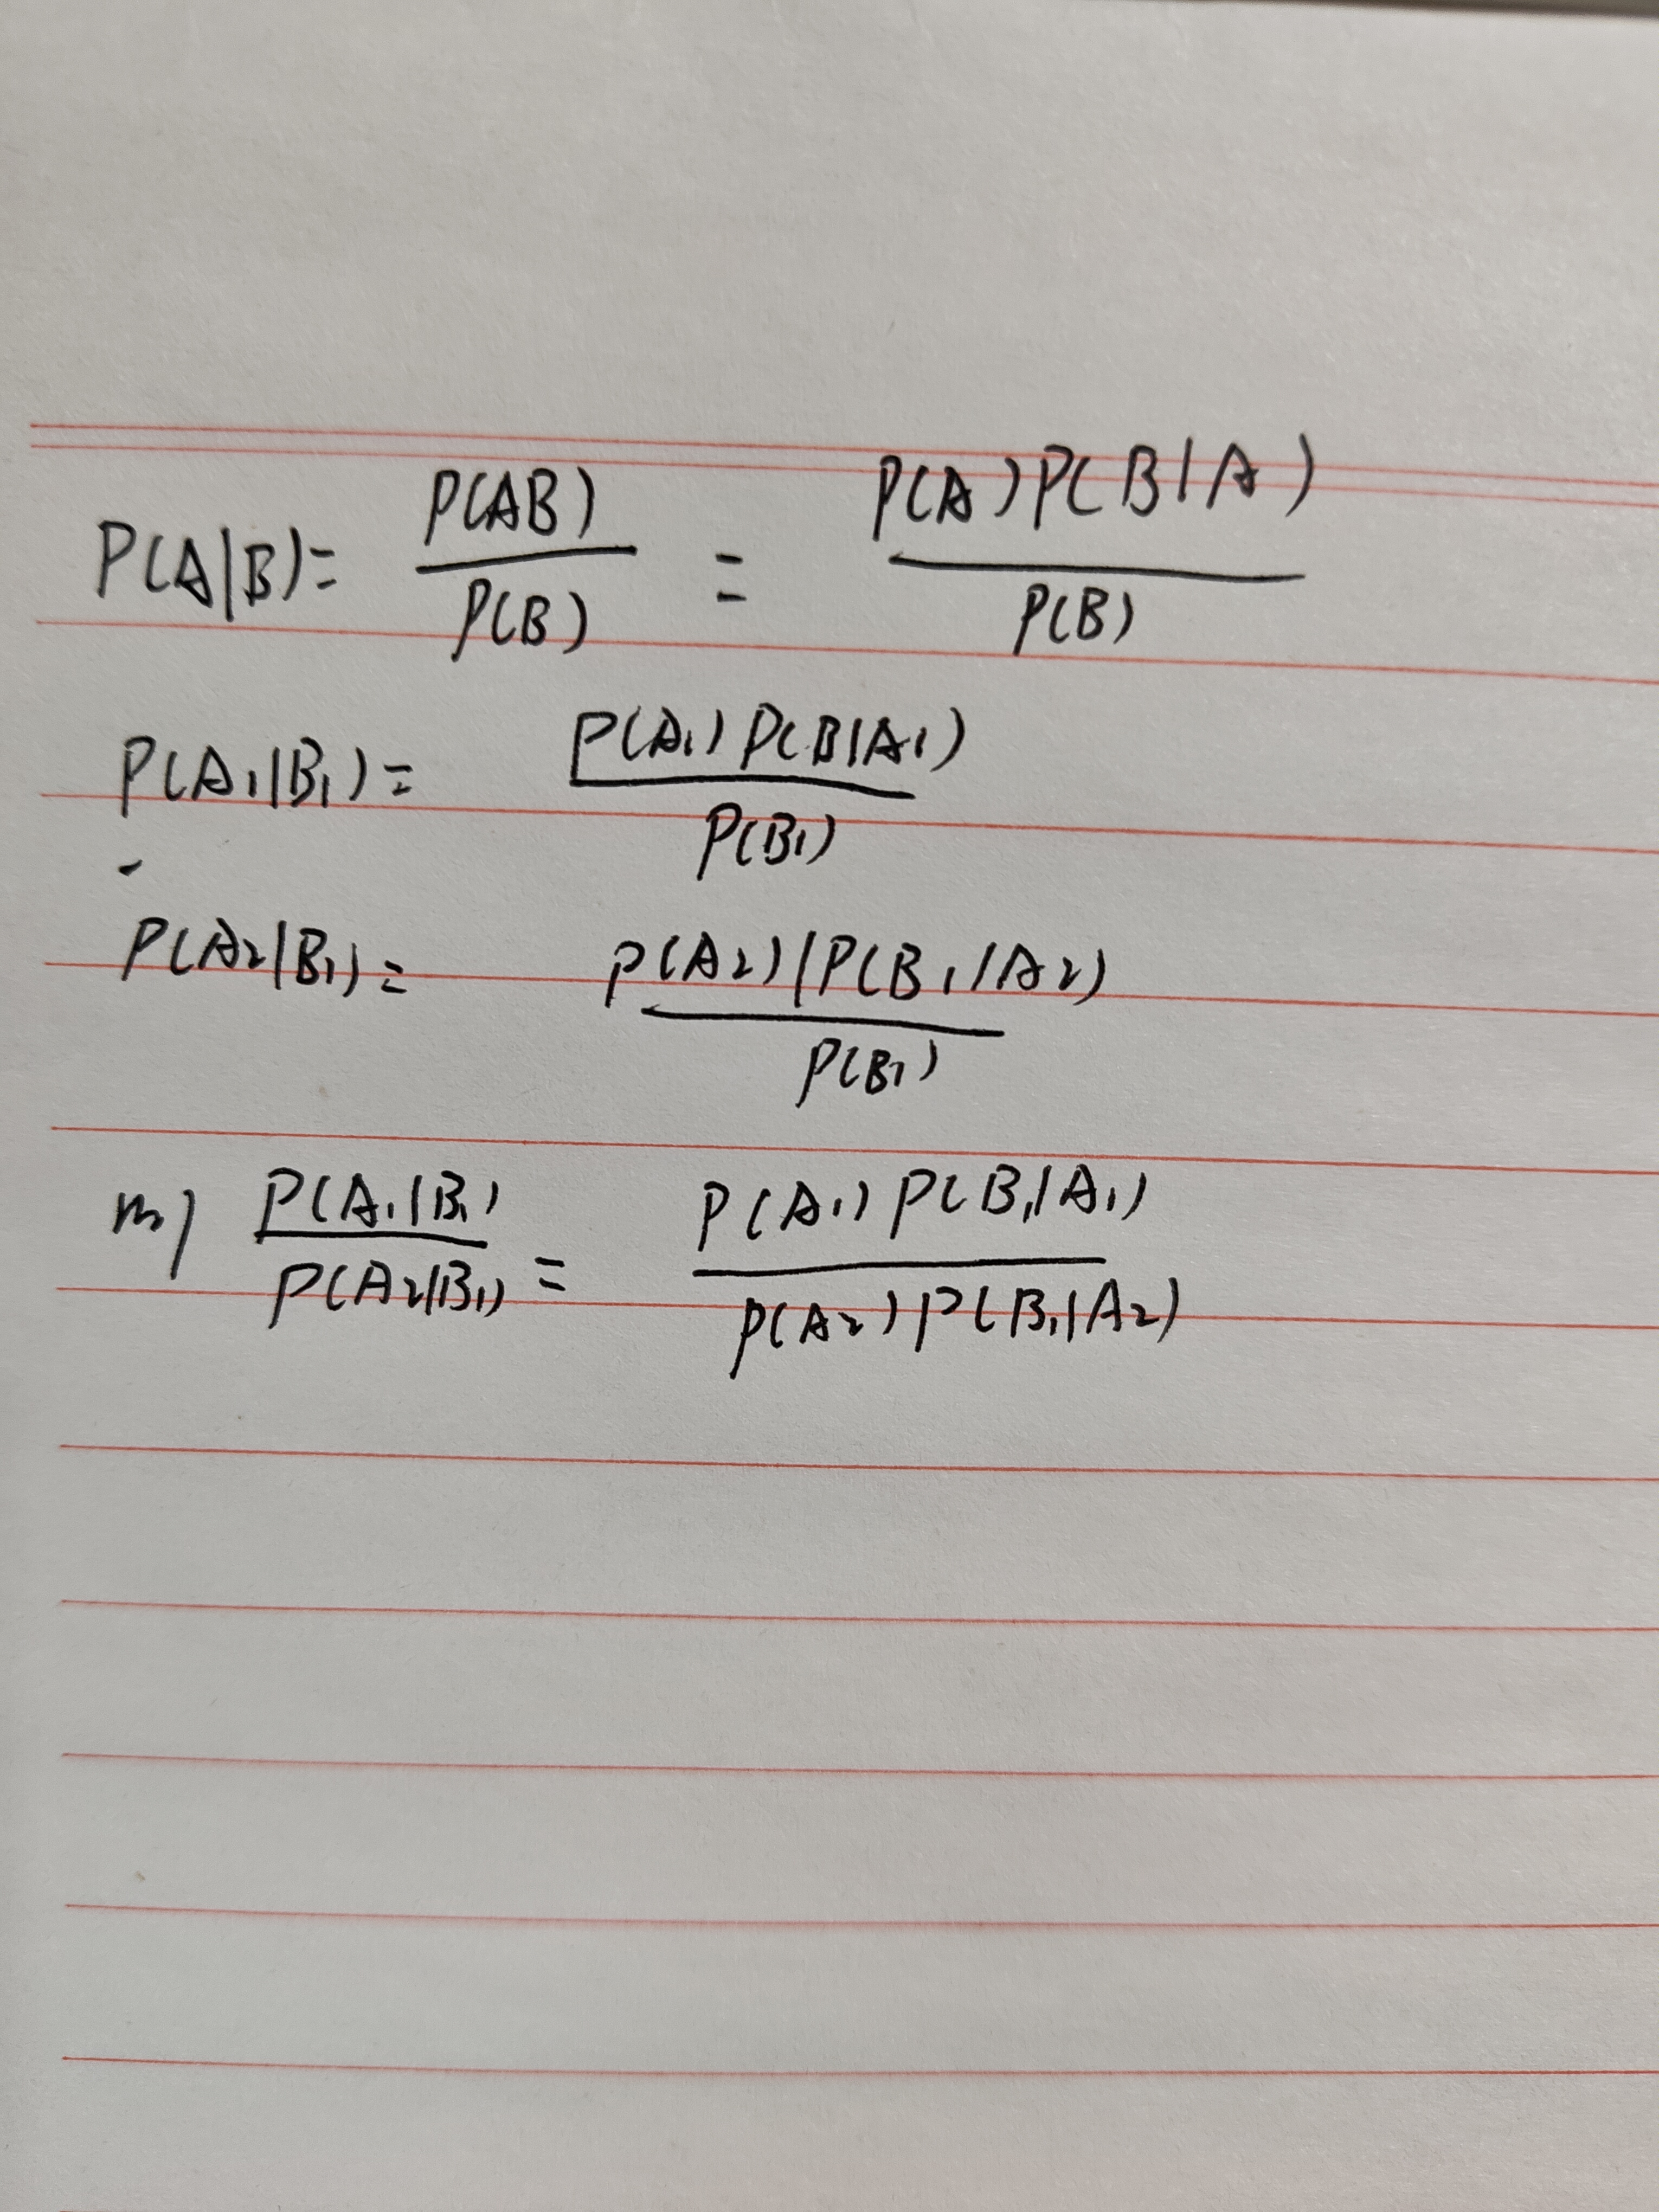 P(A|B) = P(AB) / P(B) = P(A)P(B|A) / P(B)
P(A₁|B₁) = P(A₁)P(B|A₁) / P(B₁)
P(A₂|B₁) = P(A₂)|P(B₁|A₂) / P(B₁)
P(A₁|B₁) / P(A₂|B₁) = P(A₁)P(B₁|A₁) / P(A₂)P(B₁|A₂)